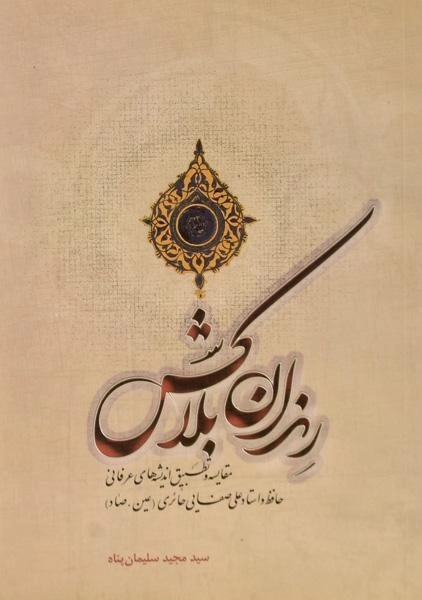 رندان بلاکش
مقایسه و تطبیق اندیشه‌های عرفانی
حافظ و استاد علی صفایی حائری (عین . صاد)
سید مجید سلیمان پناه